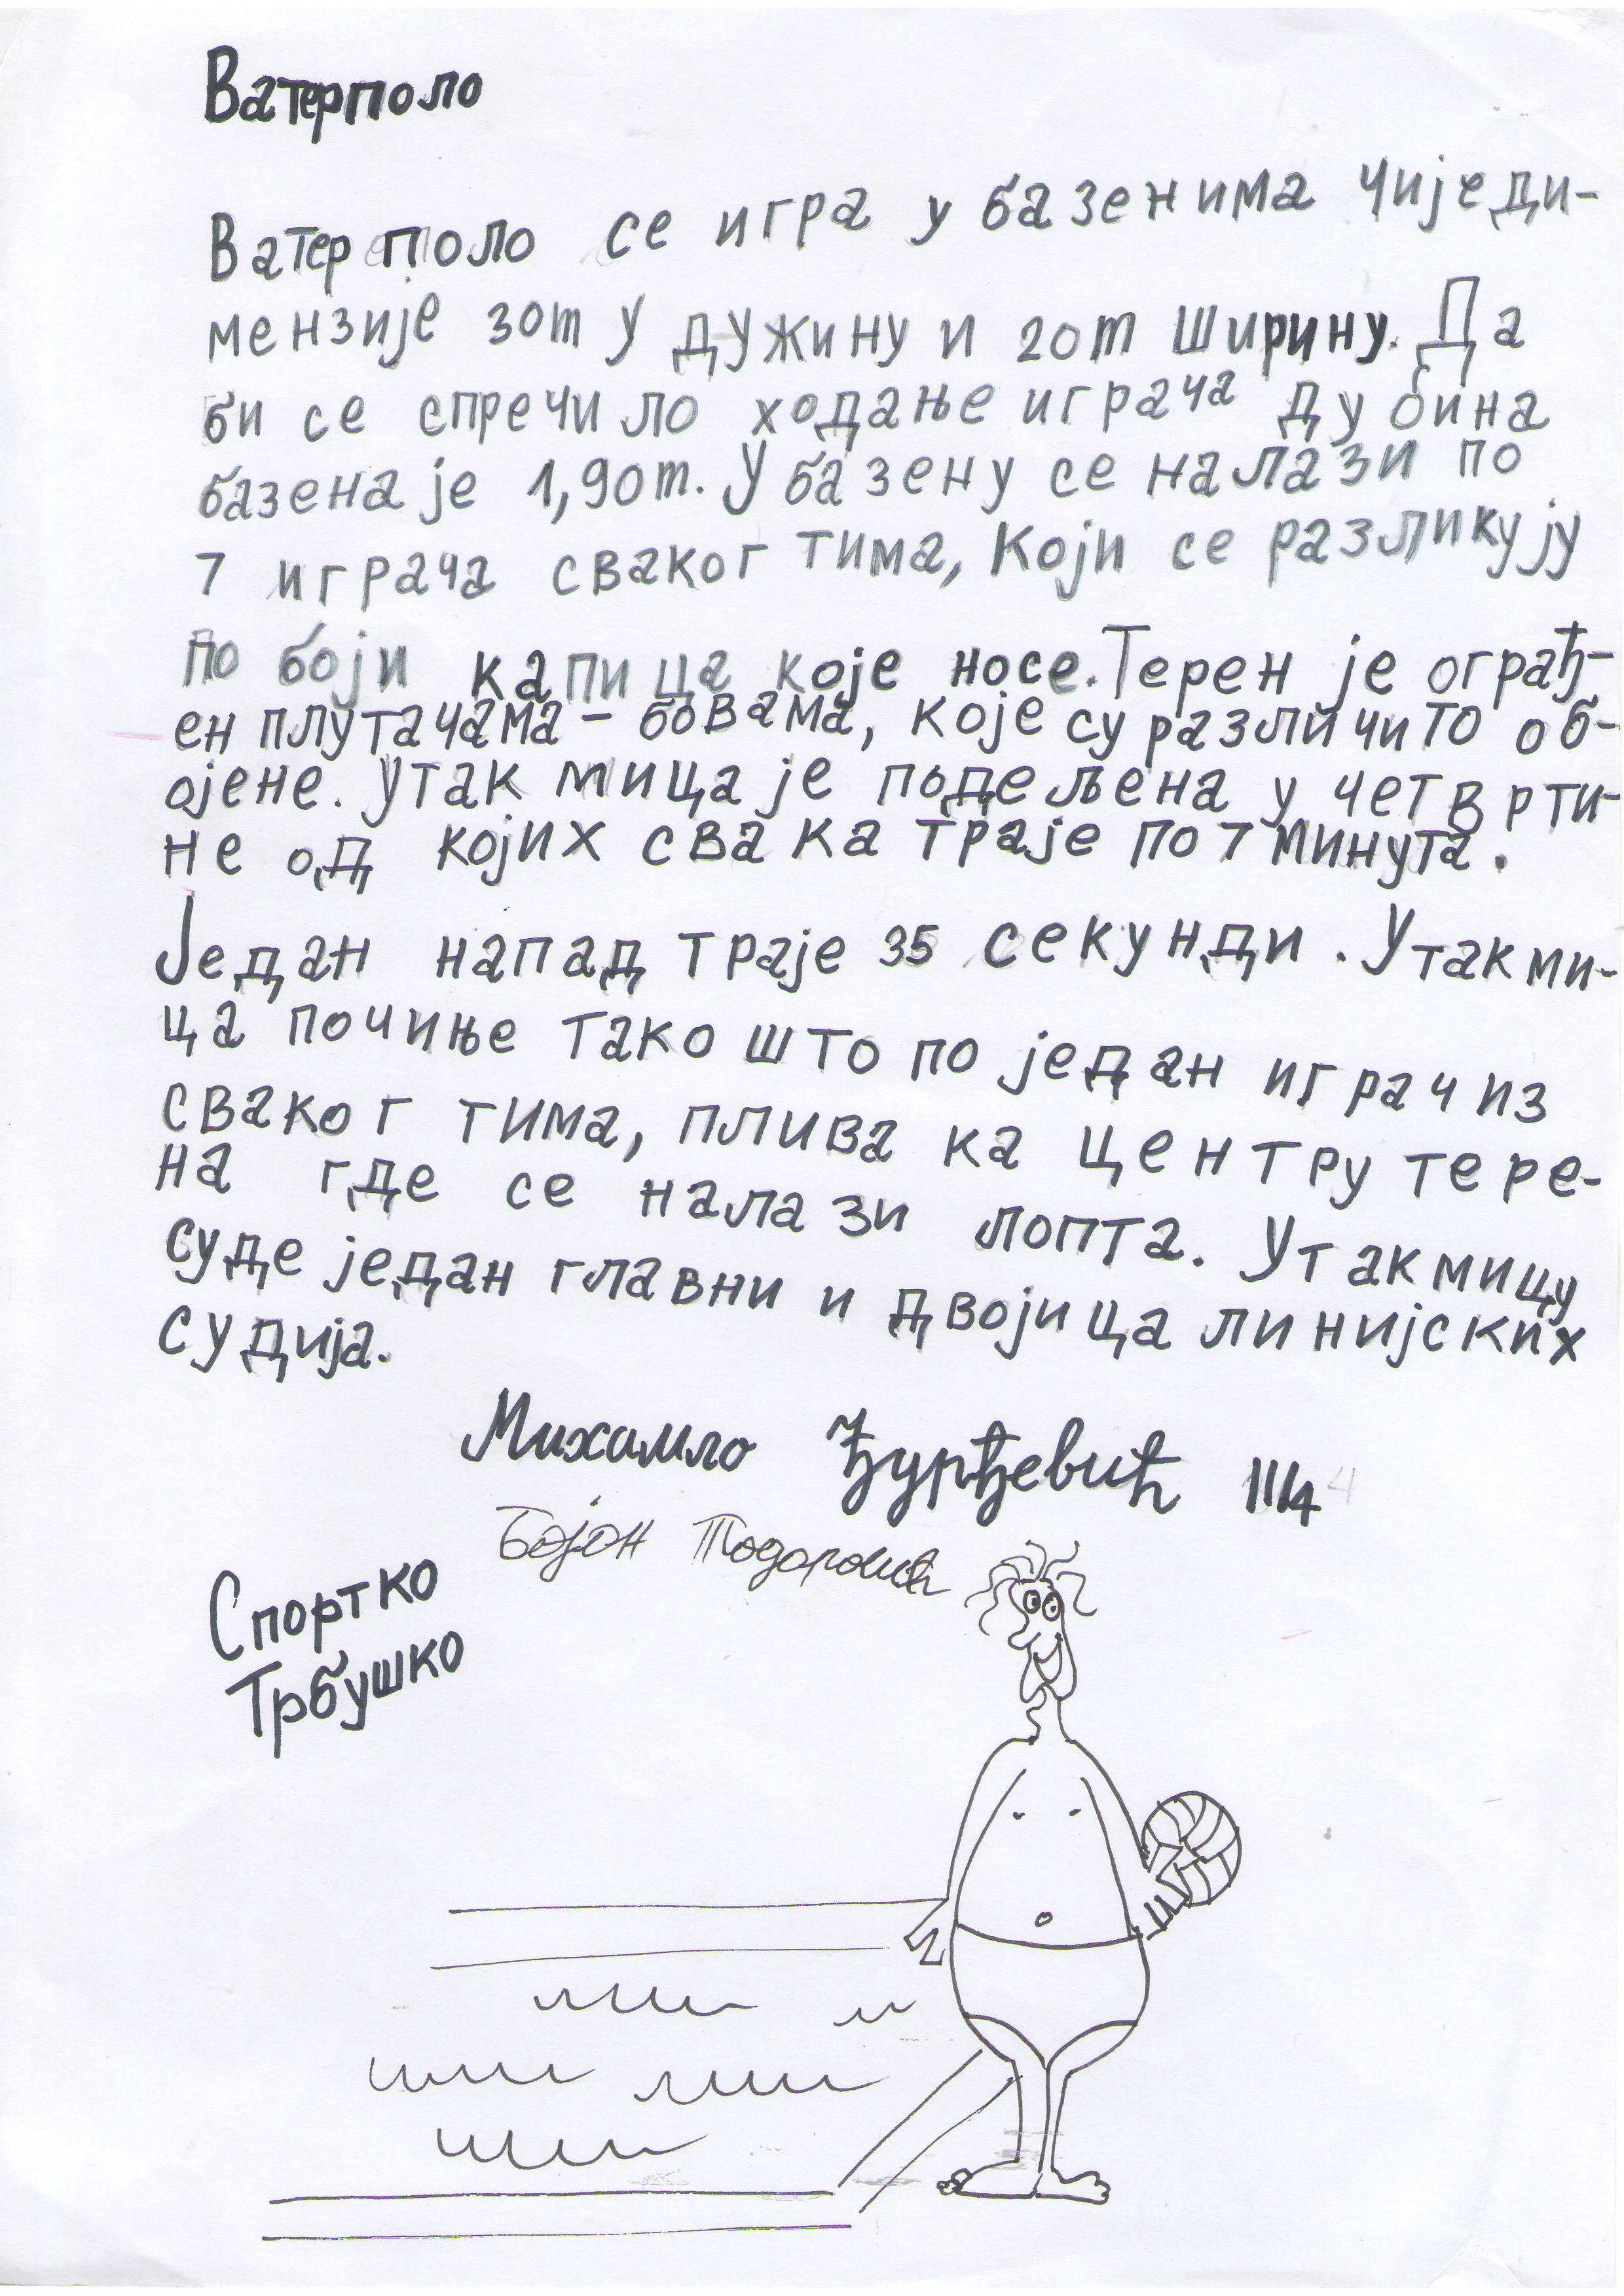 Ватерполо
Ватерполо се игра у базенима чије ди-
мензије 30m у дужину и 20m ширину. Да
би се спречило ходање играча дубина
базена је 1,90m. У базену се налази по
7 играча сваког тима, Који се разликују
по боји капица које носе. Терен је ограђ-
ен плутачама - бовама, које су различито об-
ојене. Утакмица је подељена у четврти-
не од којих свака траје по 7 минута.
Један напад траје 35 секунди. Утакми-
ца почиње тако што по један играч из
сваког тима, плива ка центру тере-
на где се налази лопта. Утакмицу
суде један главни и двојица линијских
судија.
Михаило Ђурђевић III4
Бојан Тодоровић
Спортко
Трбушко